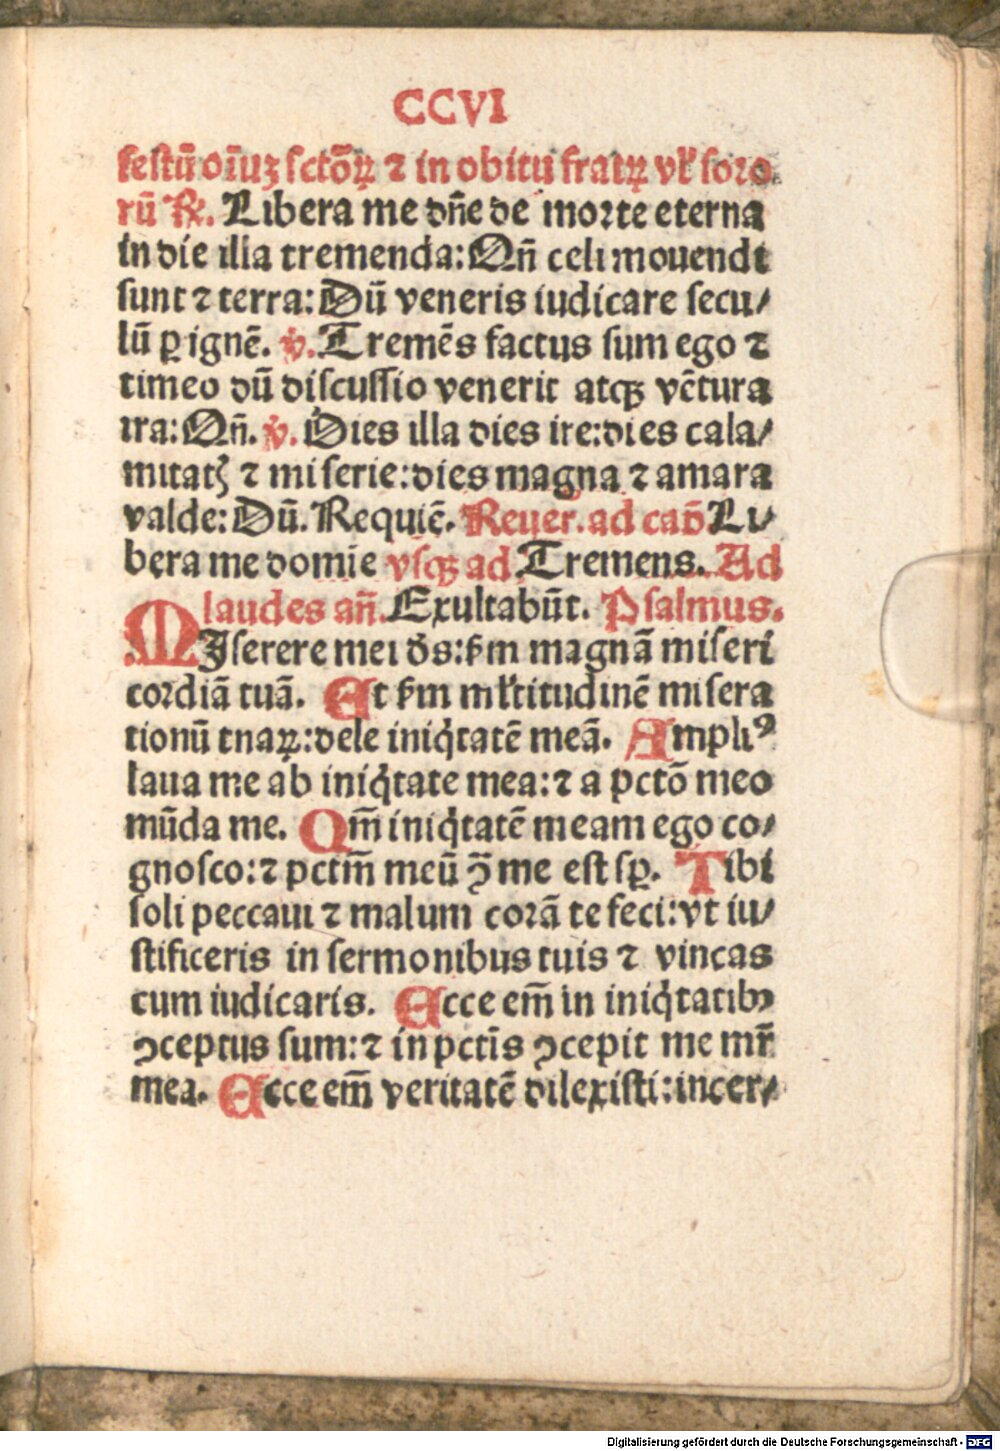 CCVI
festū oīuʒ sctōꝝ ⁊ in obitu fratꝝ vl̕ soro
rū ℞. Libera me dn̄e de morte eterna
in die illa tremenda: Qn̄ celi mouendi
sunt ⁊ terra: Dū veneris iudicare secu/
lū ꝑ ignē. ℣. Tremēs factus sum ego ⁊
timeo dū discussio venerit atqꝫ vētura
ira: Qn̄. ℣. Dies illa dies ire: dies cala/
mitatꝭ ⁊ miserie: dies magna ⁊ amara
valde: Dū. Requiē. Reuer. ad cap̄ Li/
bera me domīe vsqꝫ ad Tremens. Ad
laudes an̄. Exultabūt. Psalmus.
MIserere mei ds̄: ẜm magnā miseri
cordiā tuā. Et ẜm ml̕titudinē misera
tionū tnaꝝ: dele iniq̇tatē meā. Ampliꝰ
laua me ab iniq̇tate mea: ⁊ a pctō meo
mūda me. Qm̄ iniq̇tatē meam ego co/
gnosco: ⁊ pctm̄ meū ↄ̄ me est sꝑ. Tibi
soli peccaui ⁊ malum corā te feci: vt iu/
stificeris in sermonibus tuis ⁊ vincas
cum iudicaris. Ecce em̄ in iniq̇tatibꝫ
ↄceptus sum: ⁊ in pctīs ↄcepit me mr̄
mea. Ecce em̄ veritatē dilexisti: incer/
Digitalisierung gefördert durch die Deutsche Forschungsgemeinschaft - DFG